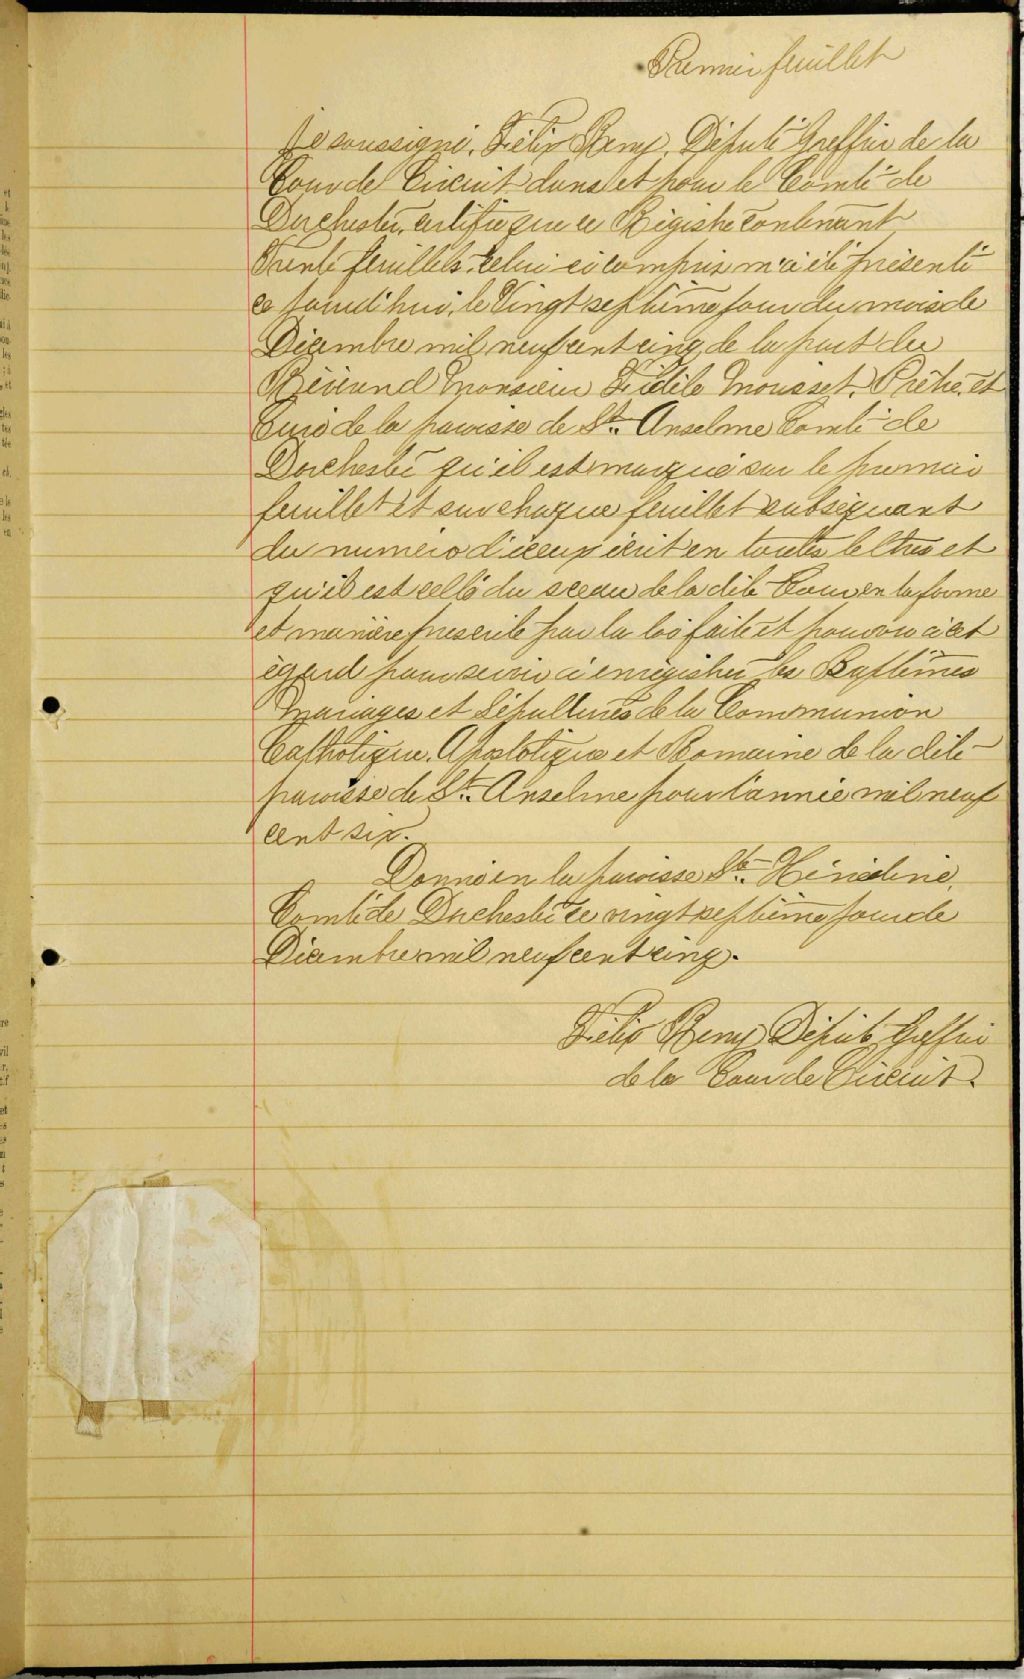 Premier feuillet
Je soussigné, Félix Remy, Député Greffier de la
Cour de Circuit dans et pour le Comté de
Dorchester, certifie que ce Régistre contenant
Trente feuillets, celui-ci compris m'a été présenté
ce jourd'hui, le Vingt septième jour du mois de
Décembre mil neuf cent cinq, de la part du
Révérend Monsieur Fidèle Mousset, Prêtre, et
Curé de la paroisse de St. Anselme Comté de
Dorchester qu'il est marqué sur le premier
feuillet et sur chaque feuillet subséquent
du numéro d'iceux écrit en toutes lettres et
qu'il est scellé du sceau de la dite Cour en la forme
et manière prescrite par la loi faite et pourvu à cet
égard pour servir à enrégistrer les Baptêmes
Mariages et Sépultures de la Communion
Catholique, Apostolique et Romaine de la dite
paroisse de St. Anselme pour l'année mil neuf
cent six.
Donné en la paroisse Ste. Hénédine,
Comté de Dorchester ce vingt septième jour de
Décembre mil neuf cent cinq.
Félix Remy Député Greffier
de la Cour de Circuit.